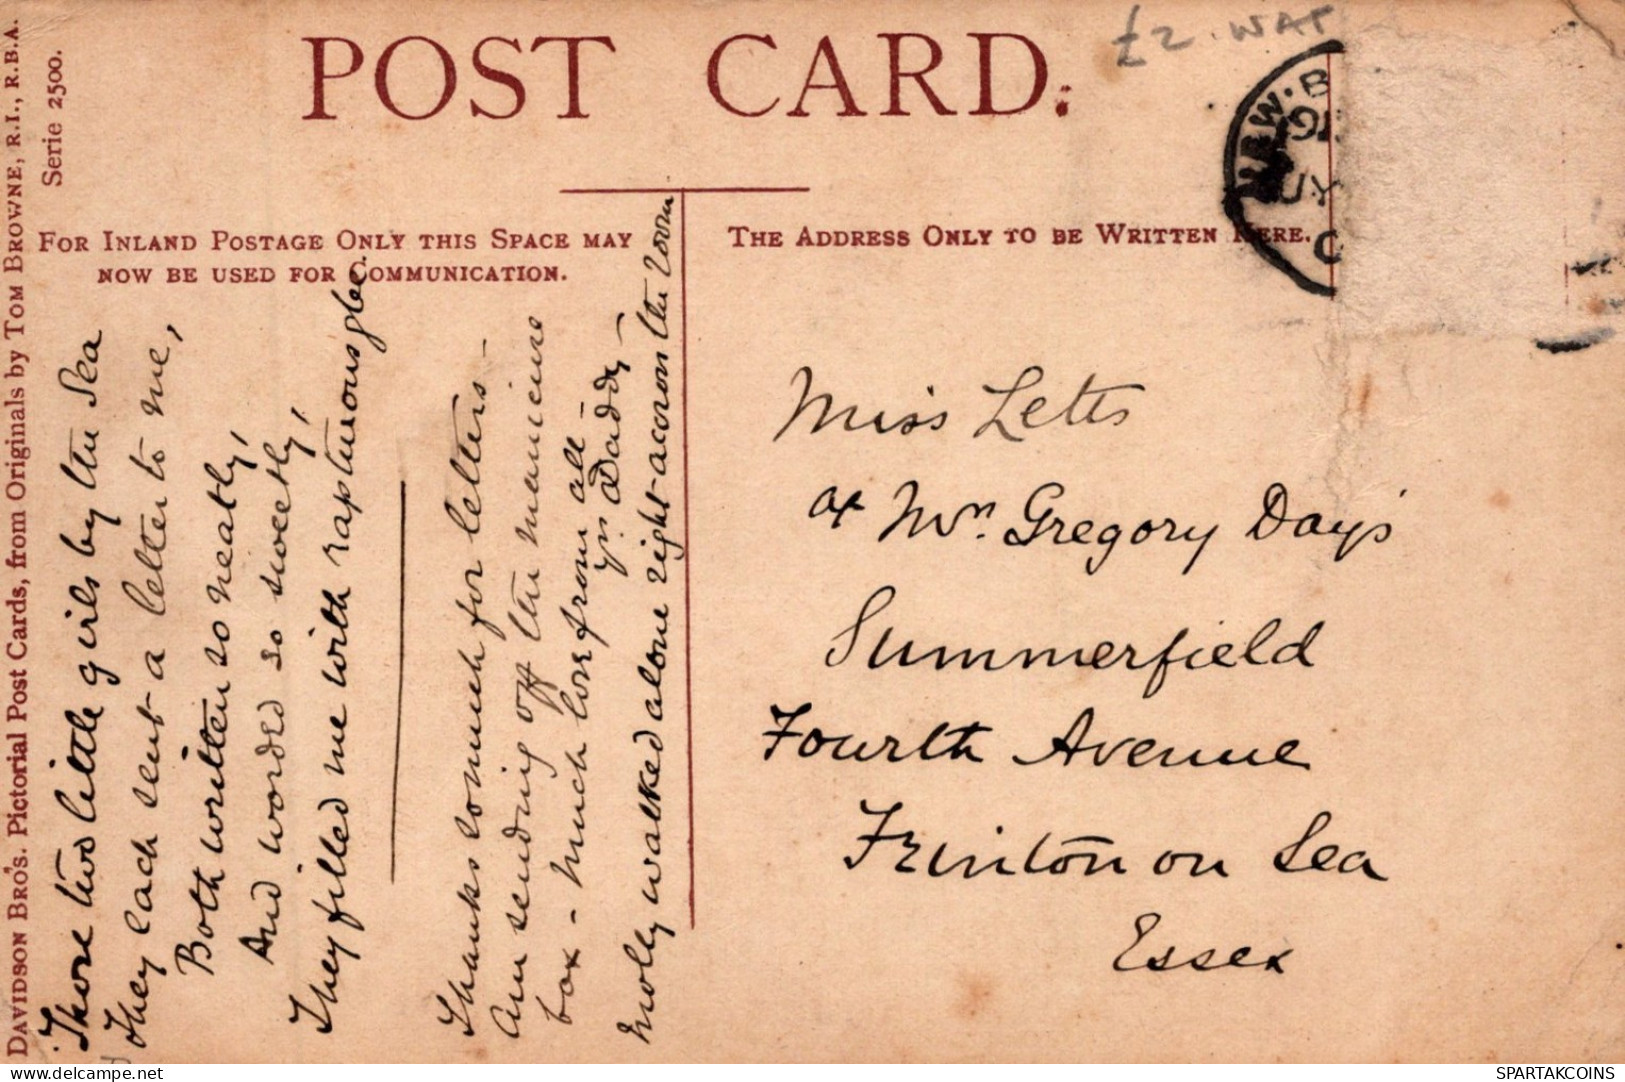 POST CARD.
£2.
DAVIDSON BRO'S. Pictorial Post Cards, from Originals by TOM BROWNE, R.I., R.B.A.
Serie 2500.
FOR INLAND POSTAGE ONLY THIS SPACE MAY
NOW BE USED FOR COMMUNICATION.
THE ADDRESS ONLY TO BE WRITTEN HERE.
Those two little girls by the Sea
They each sent a letter to me,
Both written so neatly,
And worded so sweetly,
They filled me with rapturous glee.
Thanks so much for letters -
Am sending off the
box - Much love from all -
yr. Daddy -
Molly walked alone right across the room
Miss Letts
at Mrs. Gregory Day's
Summerfield
Fourth Avenue
Frinton on Sea
Essex
SPARTAKCOINS